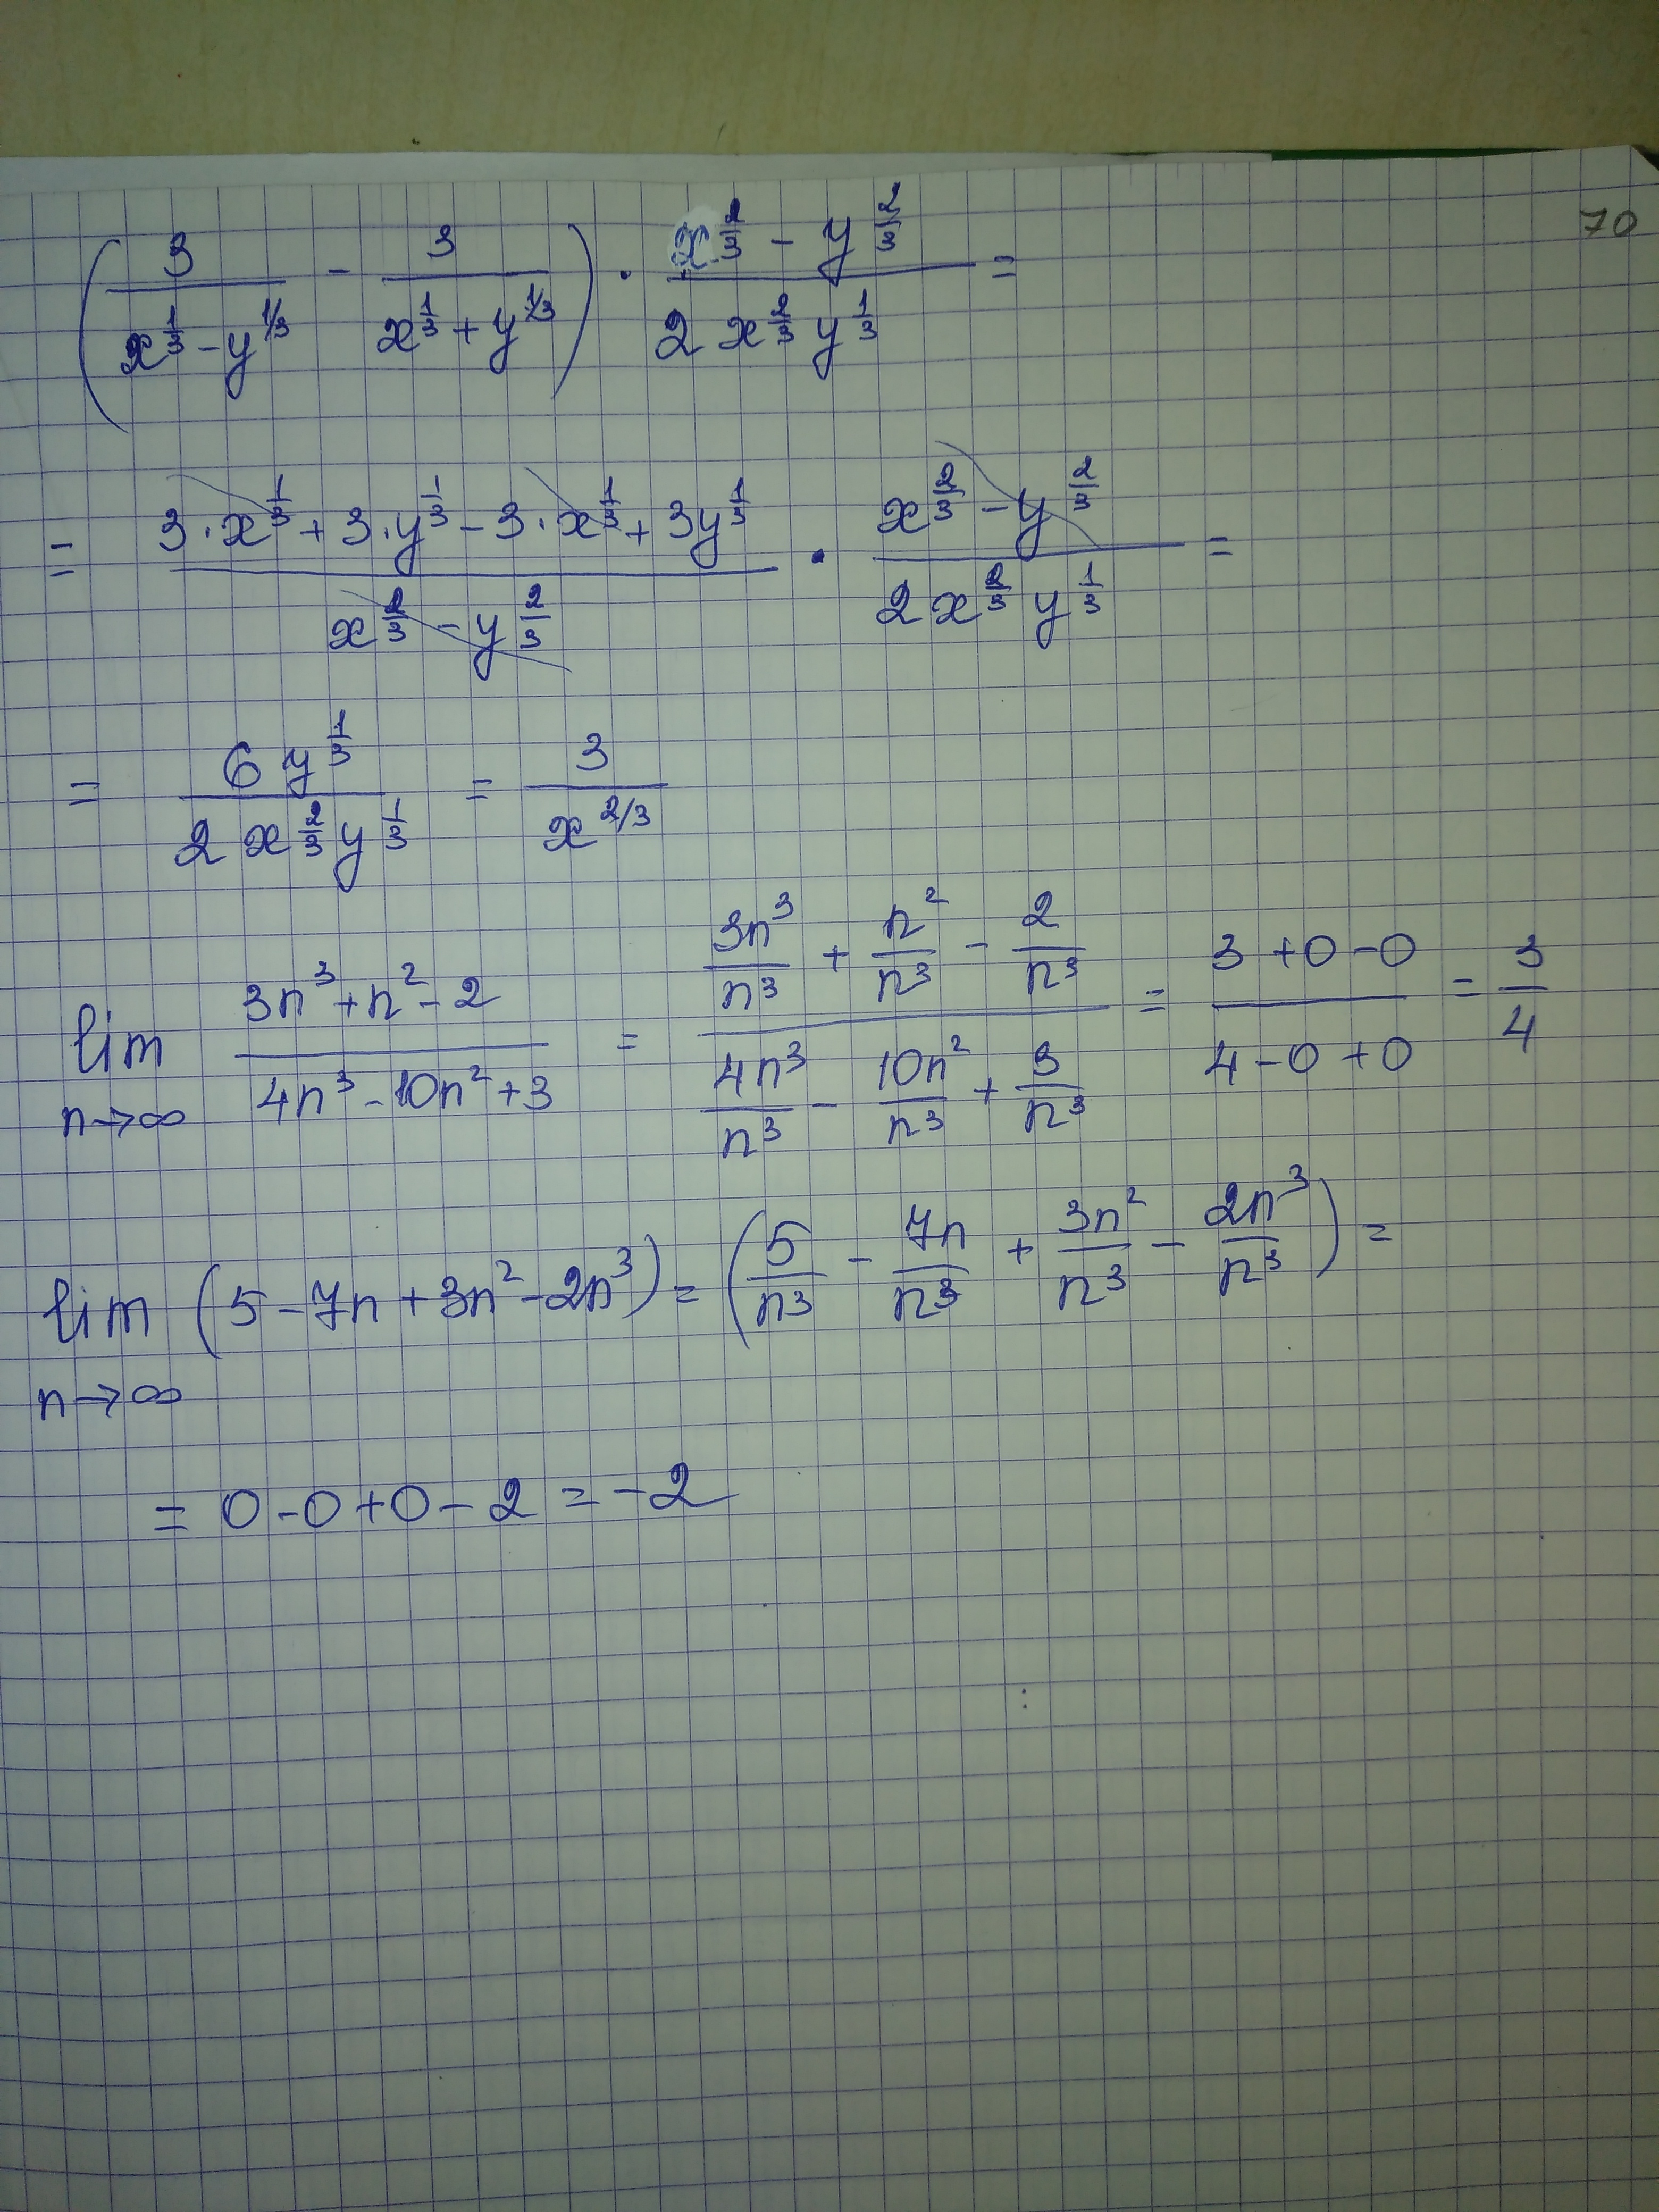 70
(3/(x^(1/3) - y^(1/3)) - 3/(x^(1/3) + y^(1/3))) · (x^(2/3) - y^(2/3))/(2 x^(2/3) y^(1/3)) =
= (3·x^(1/3) + 3·y^(1/3) - 3·x^(1/3) + 3y^(1/3))/(x^(2/3) - y^(2/3)) · (x^(2/3) - y^(2/3))/(2x^(2/3) y^(1/3)) =
= (6 y^(1/3))/(2 x^(2/3) y^(1/3)) = 3/x^(2/3)
lim n→∞ (3n³ + n² - 2)/(4n³ - 10n² + 3) = (3n³/n³ + n²/n³ - 2/n³)/(4n³/n³ - 10n²/n³ + 3/n³) = (3 + 0 - 0)/(4 - 0 + 0) = 3/4
lim n→∞ (5 - 7n + 3n² - 2n³) = (5/n³ - 7n/n³ + 3n²/n³ - 2n³/n³) =
= 0 - 0 + 0 - 2 = -2